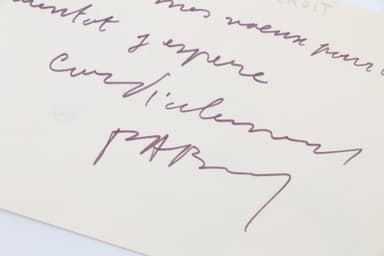 mes voeux pour
bientot j espere
Cordialement